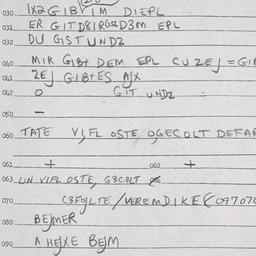 030 1X2GIBT IM DIEPL
031 ER GITD8IRGIZD3M EPL
032 DU GIST UNDZ
040 MIR GIBT DEM EPL CU ZEJ = GIB
041 ZEJ GIBTES AJX
042 O GIT UNDZ
050 —
060 TATE VJFL OSTE OGECOLT DEFAR
061 + 062 +
063 UN VIFL OSTE, G3COLT
070 C3FOJLTE / VEREMDIKE 09707
080 BEJMER
090 A HEJXE BEJM